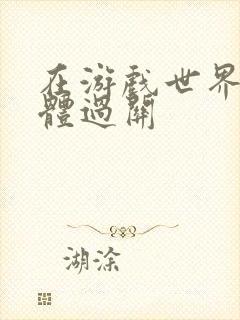 在游戏世界
體過關
湖涂